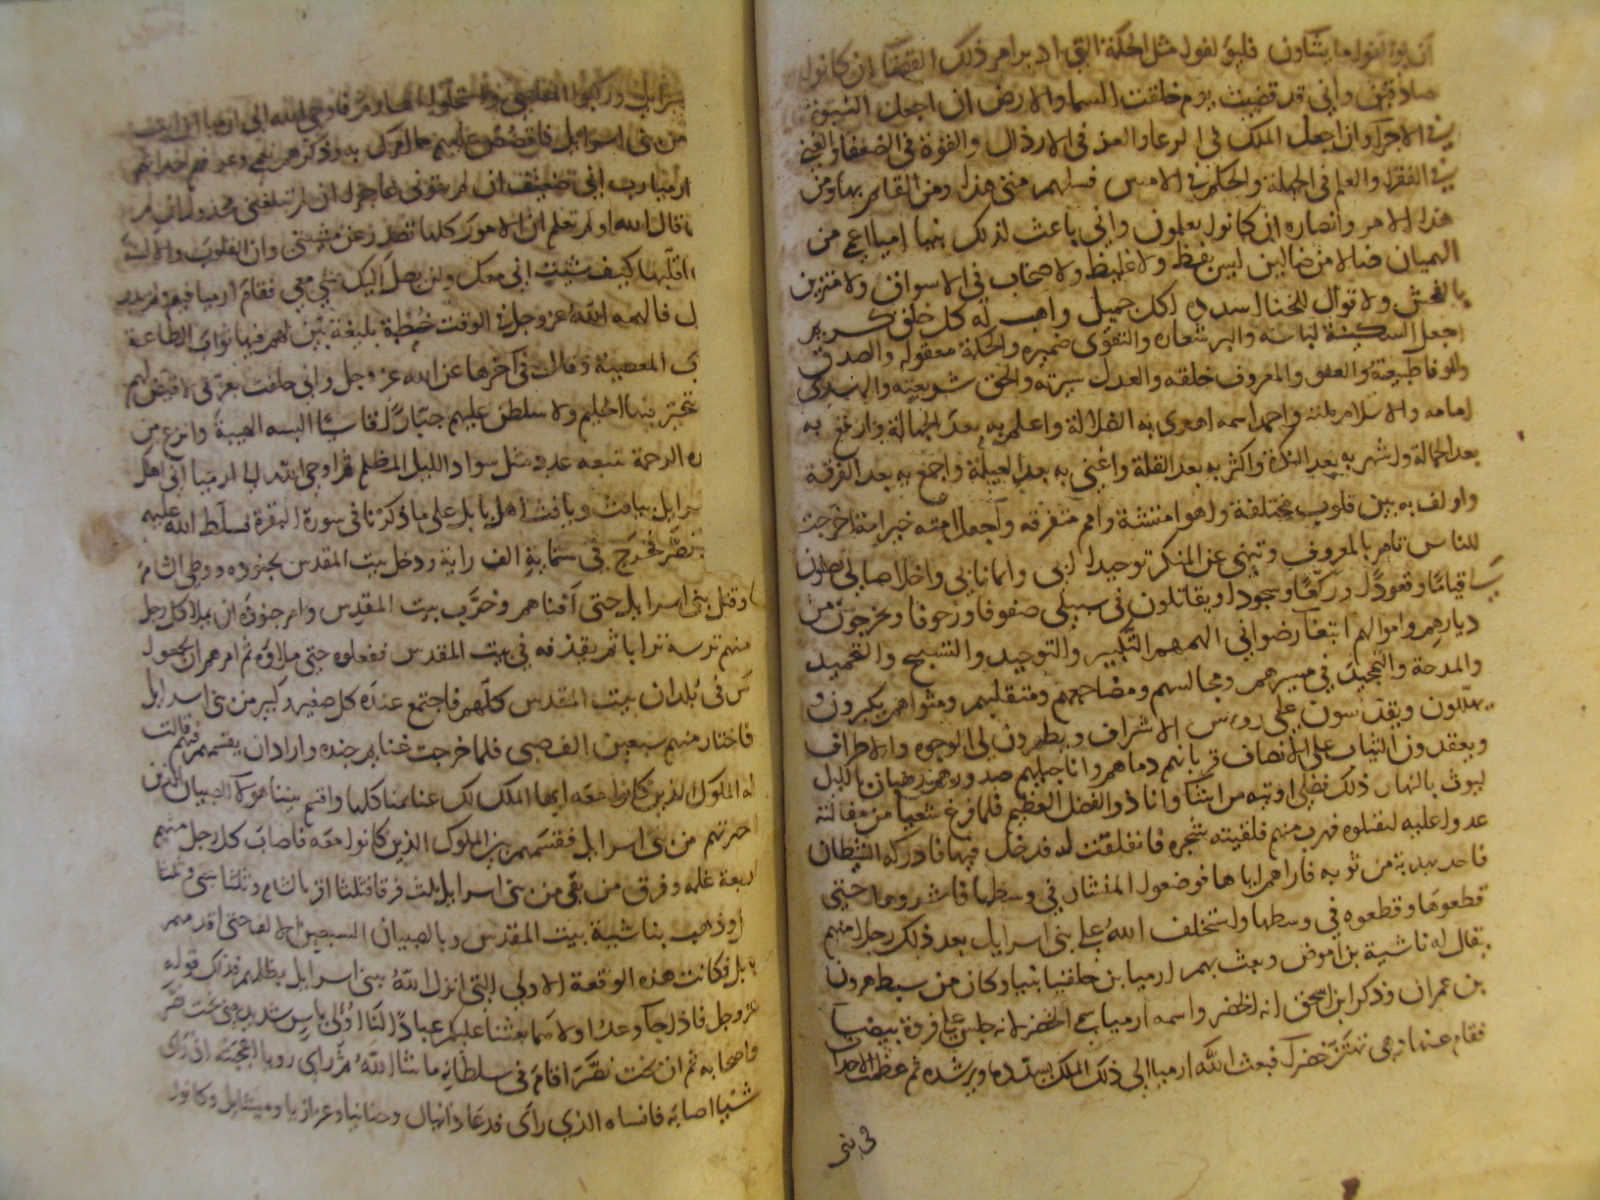 ان يؤلفوا ما يشاون فليؤلفوا مثل الحكمة التي ادبر امر ذلك القضا ان كانوا
صادقين واني قد قضيت يوم خلقت السما والارض ان اجعل النبوة
في الاجرا وان اجعل الملك في الرعا والعز في الارذال والقوة في الضعفا والغنى
في الفقرا والعلم في الجهلة والحكم في الاميين فسلهم متى هذا ومن القايم بهذا ومن
هذا الامر وانصاره ان كانوا يعلمون واني باعث لذلك نبيا اميا اعمى من
العميان ضالا من ضالين ليس بفظ ولا غليظ ولا صخاب في الاسواق ولا متزين
بالفحش ولا قوال للخنا اسدده لكل جميل واهب له كل خلق كريم
اجعل السكينة لباسه والبر شعاره والتقوى ضميره والحكمة معقوله والصدق
والوفا طبيعته والعفو والمعروف خلقه والعدل سيرته والحق شريعته والهدى
امامه والاسلام ملته واحمد اسمه اهدي به بعد الضلالة واعلم به بعد الجهالة وارفع به
بعد الخمالة واشهر به بعد النكرة واكثر به بعد القلة واغني به بعد العيلة واجمع به بعد الفرقة
واولف به بين قلوب مختلفة واهوا متشتتة وامم متفرقه واجعل امته خير امة اخرجت
للناس تامر بالمعروف وتنهى عن المنكر توحيدا لي وايمانا بي واخلاصا لي يصلون
قياما وقعودا وركعا وسجودا ويقاتلون في سبيلي صفوفا وزحوفا ويخرجون من
ديارهم واموالهم ابتغا رضواني الهمهم التكبير والتوحيد والتسبيح والتحميد
والمدحة والتمجيد في مسيرهم ومجالسهم ومضاجعهم ومتقلبهم ومثواهم يكبرون و
يهللون ويقدسون على روس الاشراف ويطهرون لي الوجوه والاطراف
ويعقدون الثياب على الانصاف قربانهم دماهم واناجيلهم صدورهم رهبان بالليل
ليوث بالنهار ذلك فضلي اوتيه من اشا وانا ذو الفضل العظيم فلما فرغ شعيا من مقالته
عدوا عليه ليقتلوه فهرب منهم فلقيته شجره فانفلقت له فدخل فيها فادركه الشيطان
فاخد بهدبة من ثوبه فاراهم اياها فوضعوا المنشار في وسطها فنشروها حتى
قطعوها وقطعوه في وسطها واستخلف الله على بني اسرايل بعد ذلك رجلا منهم
يقال له ناشية بن اموص وبعث بهم ارميا بن حلفيا نبيا وكان من سبط هرون
بن عمران وذكر ابن اسحق انه الخضر واسمه ارميا سمي الخضر لانه جلس على فروة بيضا
فقام عنها وهي تهتز خضرا فبعث الله ارميا الى ذلك الملك يسدده ويرشده ثم عظمت الاحداث
في بني
اسرايل وركبوا المعاصي واستحلوا المحارم فاوحى الله الى ارميا ان ايت
من بني اسرايل فاقصص عليهم ما امرك به وذكرهم نعمي وعرفهم احداثهم
ارميا رب اني ضعيف ان لم تقوني عاجز ان لم تبلغني مخذول ان لم
قال الله اولم تعلم ان الامور كلها تصدر عن مشيتي وان القلوب والالسنة
اقلبها كيف شيت اني معك ولن يصل اليك شي معي فقام ارميا فيهم ولم يدر
فالهمه الله عز وجل في الوقت خطبة بليغة بين لهم فيها ثواب الطاعة
المعصية وقال في اخرها عن الله عز وجل واني حلفت بعزتي لاقيضن لهم
يتحير فيها الحليم ولاسلطن عليهم جبارا قاسيا البسه الهيبة وانزع من
الرحمة يتبعه عدد مثل سواد الليل المظلم ثم اوحى الله الى ارميا اني اهل
بيافث ويافث اهل بابل على ما ذكرنا في سورة البقرة فسلط الله عليهم
نصر فخرج في ستماية الف راية ودخل بيت المقدس بجنوده ووطي الشام
وقتل بني اسرايل حتى افناهم وخرب بيت المقدس وامر جنوده ان يملا كل رجل
منهم ترسه ترابا ثم يقذفه في بيت المقدس ففعلوه حتى ملاوه ثم امرهم ان يجمعوا
من في بلدان بيت المقدس كلهم فاجتمع عنده كل صغير وكبير من بني اسرايل
فاختار منهم سبعين الف صبي فلما خرجت غنايم جنده واراد ان يقسمهم فيهم قالت
له الملوك الذين كانوا معه ايها الملك لك غنايمنا كلها واقسم بيننا هولا الصبيان الذين
اخترتهم من بني اسرايل فقسمهم بين الملوك الذين كانوا معه فاصاب كل رجل منهم
اربعة غلمه وفرق من بقي من بني اسرايل ثلث فرقا فثلثا اقر بالشام وثلثا سبى وثلثا
وذهب بناشية بيت المقدس وبالصبيان السبعين الالف حتى اقدمهم
بابل فكانت هذه الوقعة الاولى التي انزل الله ببني اسرايل بظلمهم فذلك قوله
عز وجل فاذا جا وعد اولاهما بعثنا عليكم عبادا لنا اولي باس شديد يعني بخت نصر
واصحابه ثم ان بخت نصر اقام في سلطانه ما شا الله ثم راى رويا اعجبته اذ راى
شيا اصابه فانساه الذي راى فدعا دانيال وحنانيا وعزاريا وميشايل وكانوا